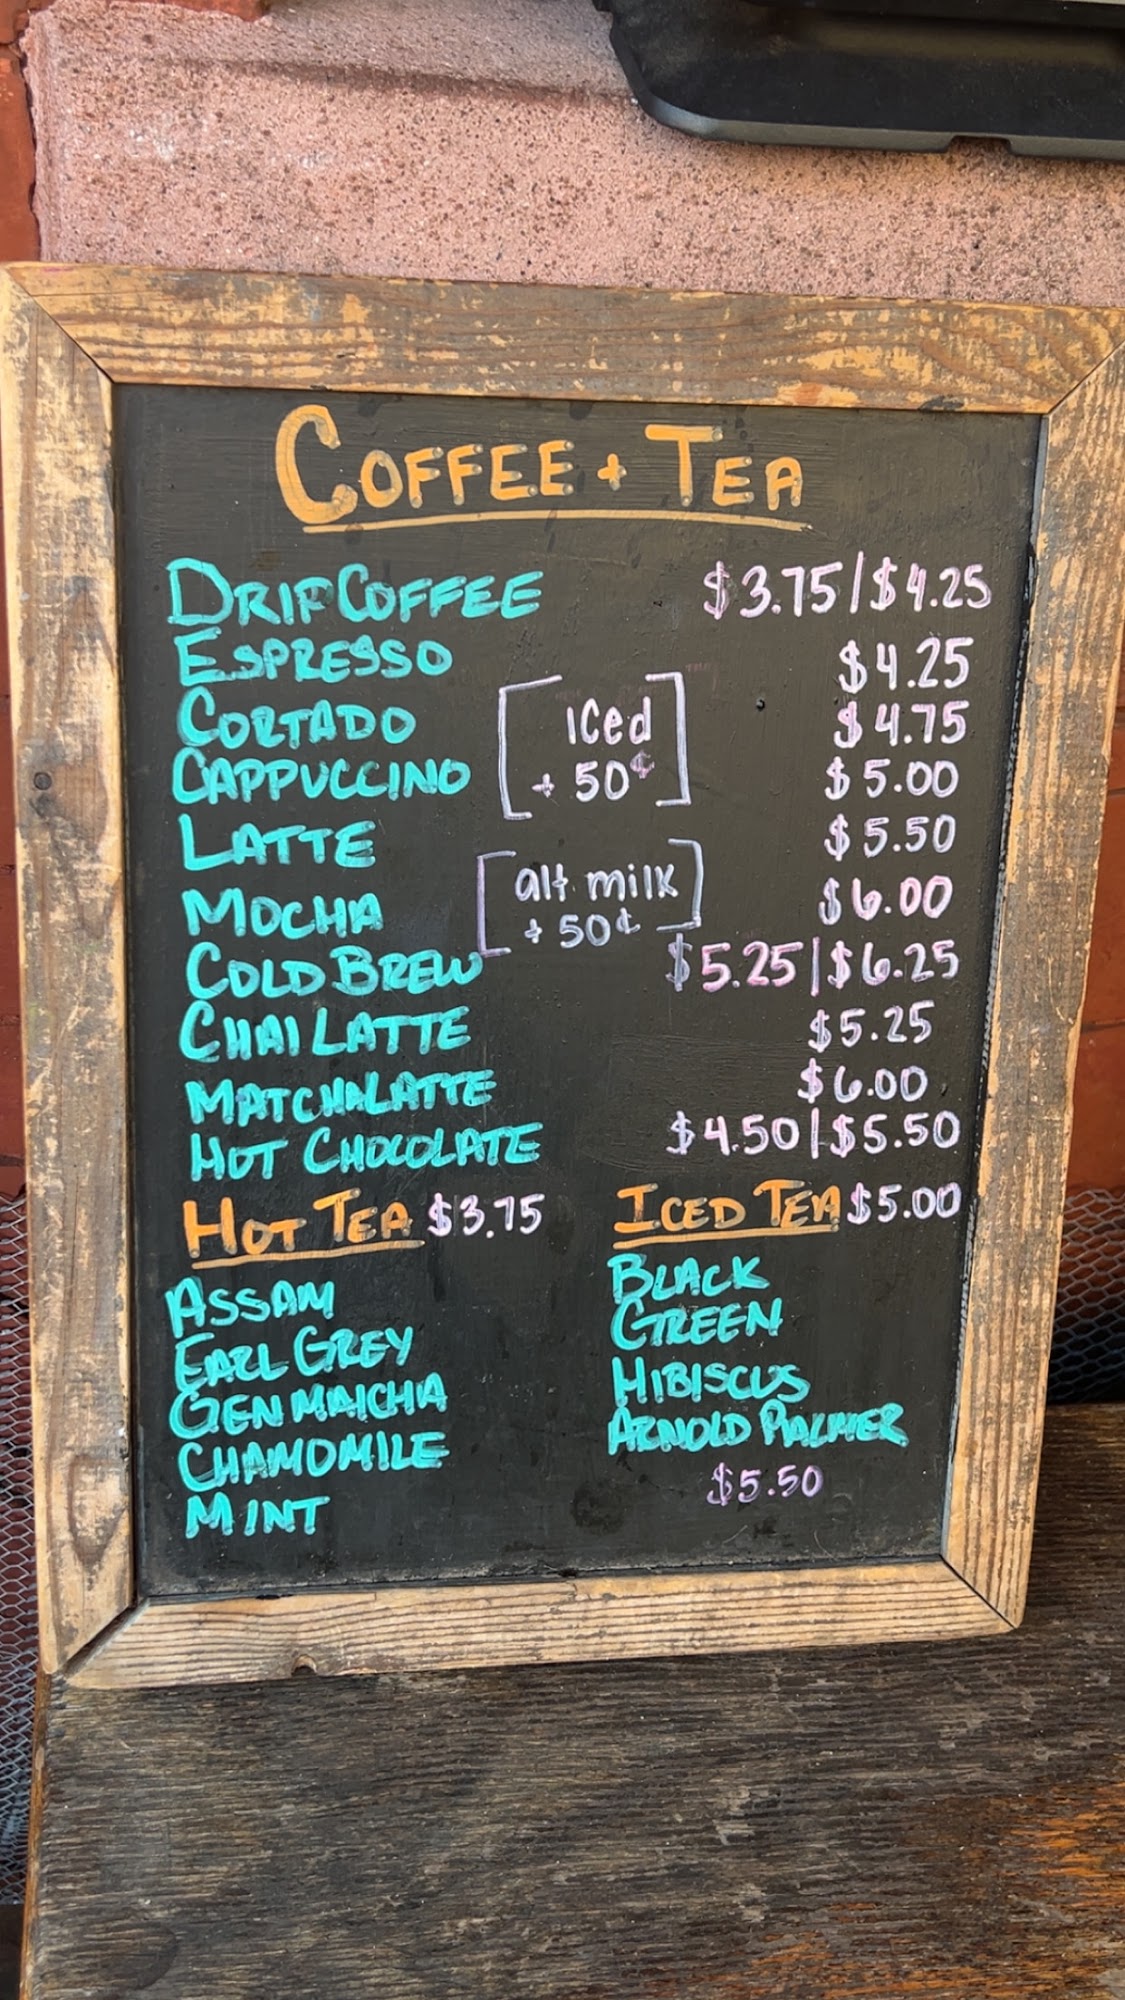 COFFEE + TEA
DRIP COFFEE $3.75/$4.25
ESPRESSO $4.25
CORTADO $4.75
CAPPUCCINO $5.00
[iced
+ 50¢]
LATTE $5.50
MOCHA $6.00
[alt. milk
+ 50¢]
COLD BREW $5.25|$6.25
CHAI LATTE $5.25
MATCHA LATTE $6.00
HOT CHOCOLATE $4.50|$5.50
HOT TEA $3.75
ASSAM
EARL GREY
GENMAICHA
CHAMOMILE
MINT
ICED TEA $5.00
BLACK
GREEN
HIBISCUS
ARNOLD PALMER
$5.50